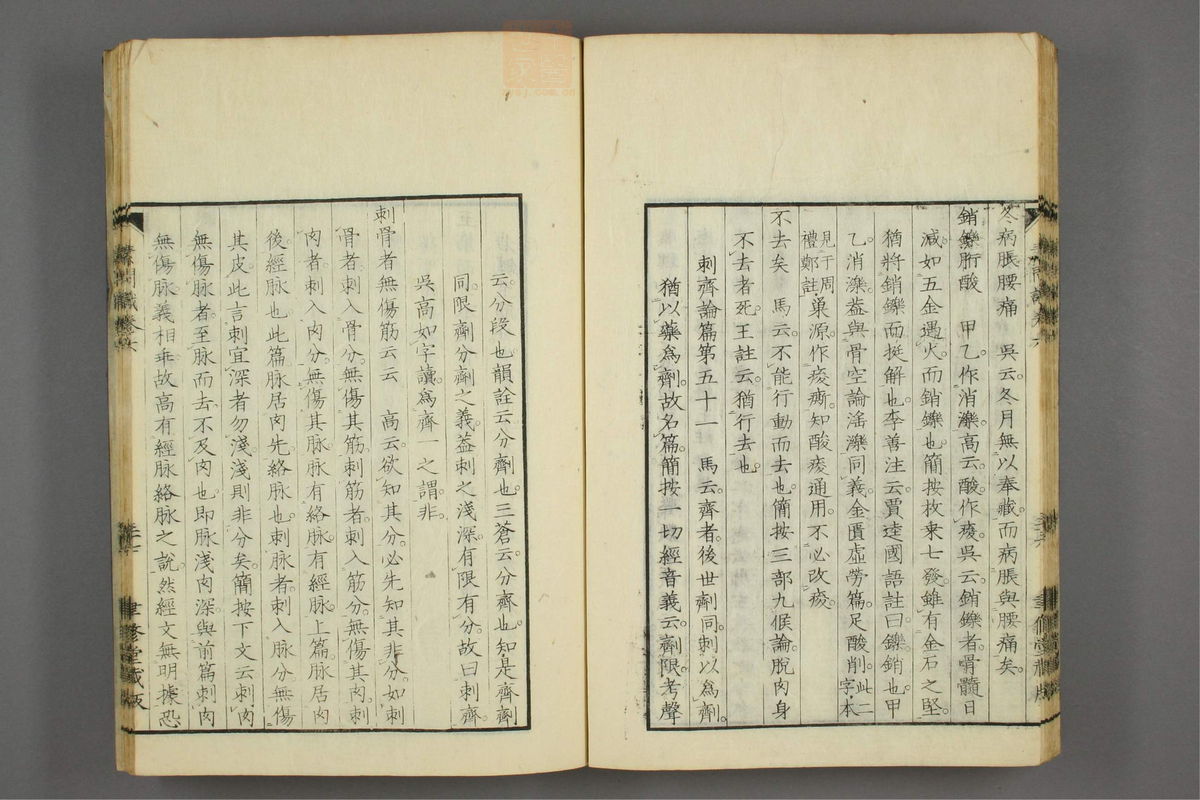 冬病脹腰痛　吳云冬月無以奉藏而病脹與腰痛矣
銷鑠胻酸　甲乙作消濼高云酸作痠吳云銷鑠者骨髓日
減如五金遇火而銷鑠也簡按枚乘七發雖有金石之堅
猶將銷鑠而挺解也李善注云賈逵國語註曰鑠銷也甲
乙消濼蓋與骨空論淫濼同義金匱虛勞篇足酸削此二字本
見于周禮鄭註巢源作痠㾷知酸痠通用不必改痠
不去矣　馬云不能行動而去也簡按三部九候論脫肉身
不去者死王註云猶行去也
刺齊論篇第五十一　馬云齊者後世劑同刺以爲劑
猶以藥爲劑故名篇簡按一切經音義云劑限考聲
云分段也韻詮云分劑也三蒼云分齊也知是齊劑
同限劑分劑之義蓋刺之淺深有限有分故曰刺齊
吳高如字讀爲齊一之謂非
刺骨者無傷筋云云　高云欲知其分必先知其非分如刺
骨者刺入骨分無傷其筋刺筋者刺入筋分無傷其肉刺
肉者刺入肉分無傷其脉脉有絡脉有經脉上篇脉居肉
後經脉也此篇脉居肉先絡脉也刺脉者刺入脉分無傷
其皮此言刺宜深者勿淺淺則非分矣簡按下文云刺肉
無傷脉者至脉而去不及肉也即脉淺肉深與前篇刺肉
無傷脉義相乖故高有經脉絡脉之說然經文無明據恐
素問識卷六
三十七
聿修堂藏版